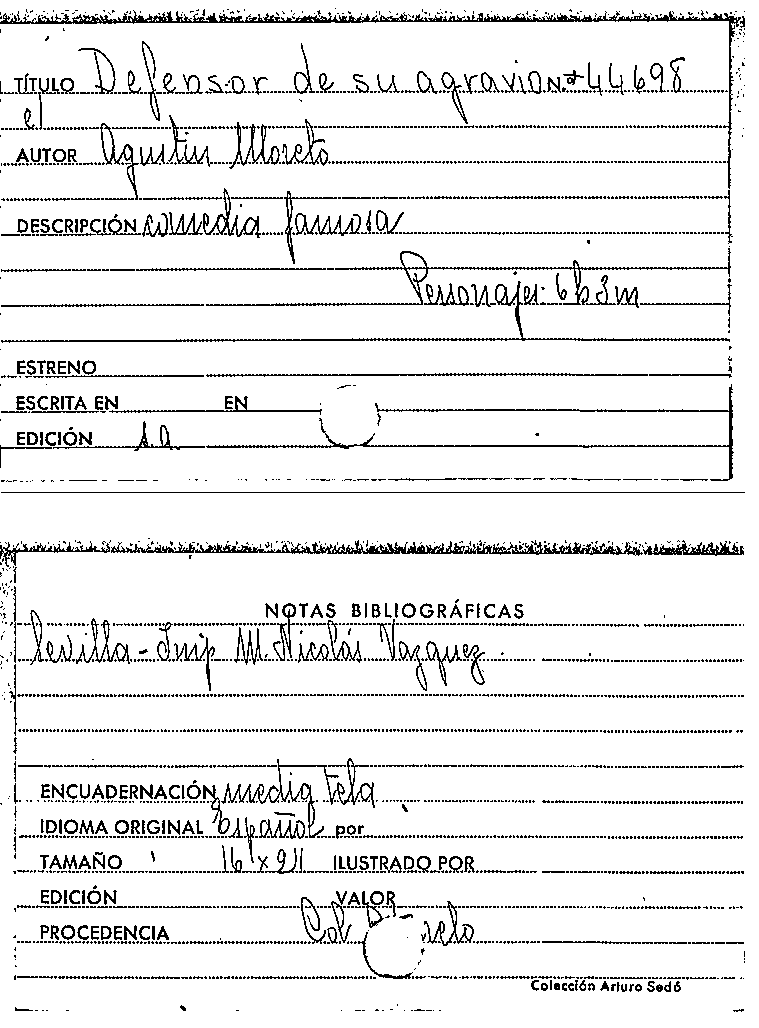 TÍTULO Defensor de su agravio N.º 44698
el
AUTOR Agustin Moreto
DESCRIPCIÓN comedia famosa
Personajes: 6h3m
ESTRENO
ESCRITA EN EN
EDICIÓN s.a.
NOTAS BIBLIOGRÁFICAS
Sevilla - Imp M. Nicolás Vazquez
ENCUADERNACIÓN media tela
IDIOMA ORIGINAL Español por
TAMAÑO ILUSTRADO POR
EDICIÓN VALOR
PROCEDENCIA Col
Colección Arturo Sedó